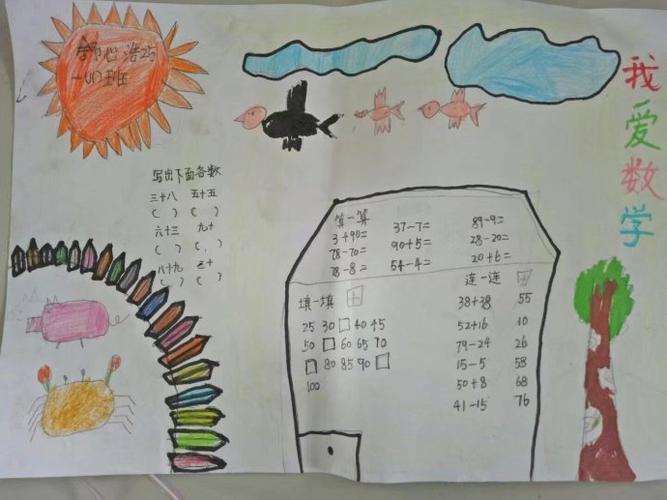 舒心浩25
一(4)班
我爱数学
写出下面各数
三十八 五十五
( ) ( )
六十三 九十
( ) ( )
八十九 三十
( ) ( )
算一算
3+90= 37-7= 89-9=
78-70= 90+5= 28-20=
78-8= 54-4= 20+6=
填一填
25 30 □ 40 45
50 □ 60 65 70
□ 80 85 90 □
100
连一连
38+38 55
52+16 10
79-24 26
15-5 58
50+8 68
41-15 76